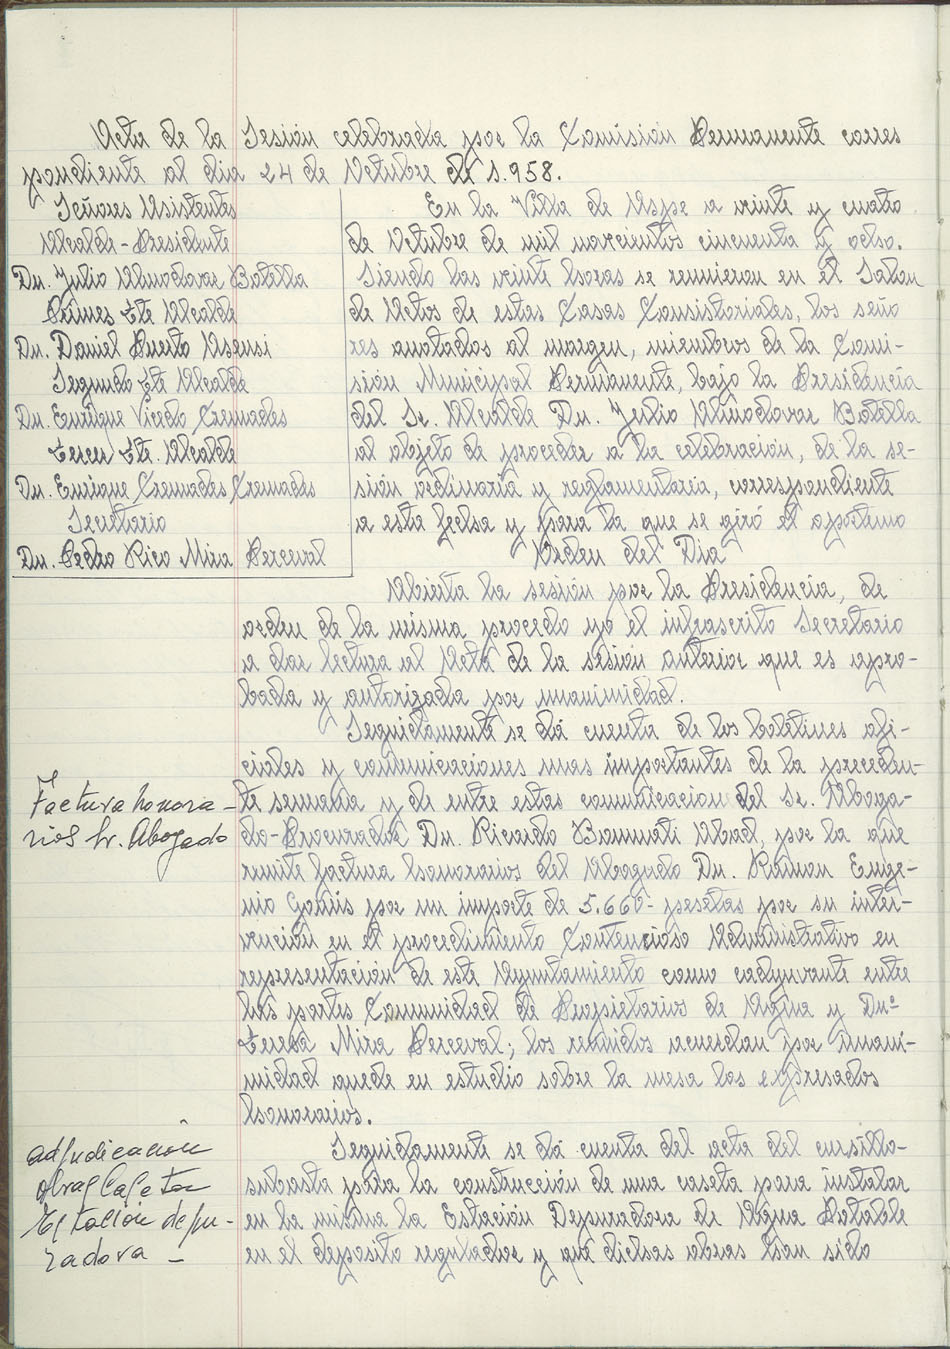 Acta de la Sesión celebrada por la Comisión Permanente corres
pondiente al dia 24 de Octubre de 1.958.
Señores Asistentes
Alcalde-Presidente
Dn. Julio Almodovar Botella
Primer Tte Alcalde
Dn. Daniel Puerto Asensi
Segundo Tte Alcalde
Dn. Enrique Vicedo Cremades
Tercer Tte. Alcalde
Dn. Enrique Cremades Cremades
Secretario
Dn. Pedro Rico Mira Perceval
En la Villa de Aspe a veinte y cuatro
de Octubre de mil novecientos cincuenta y ocho.
Siendo las veinte horas se reunieron en el Salon
de Actos de estas Casas Consistoriales, los seño
res anotados al margen, miembros de la Comi-
sión Municipal Permanente, bajo la Presidencia
del Sr. Alcalde Dn. Julio Almodovar Botella
al objeto de proceder a la celebración, de la se-
sión ordinaria y reglamentaria, correspondiente
a esta fecha y para la que se giró el oportuno
Orden del Dia
Abierta la sesión por la Presidencia, de
orden de la misma procedo yo el infrascrito Secretario
a dar lectura al Acta de la sesión anterior que es apro-
bada y autorizada por unanimidad.
Seguidamente se dá cuenta de los boletines ofi-
ciales y comunicaciones mas importantes de la preceden-
te semana y de entre estas comunicacion del Sr. Aboga-
do-Procurador Dn. Ricardo Bammati Abad, por la que
remite factura honorarios del Abogado Dn. Ramon Euge-
nio Goñis por un importe de 5.660- pesetas por su inter-
vención en el procedimiento Contencioso Administrativo en
representación de este Ayuntamiento como coadyuvante entre
las partes Comunidad de Propietarios de Agua y Dnª
Teresa Mira Perceval; los reunidos acuerdan por unani-
midad quede en estudio sobre la mesa los expresados
honorarios.
Seguidamente se dá cuenta del acta del cursillo-
subasta para la construcción de una caseta para instalar
en la misma la Estación Depuradora de Agua Potable
en el deposito regulador y que dichas obras han sido
Factura honora-
rios Sr. Abogado
adjudicación
obras Caseta
Estación depu-
radora -